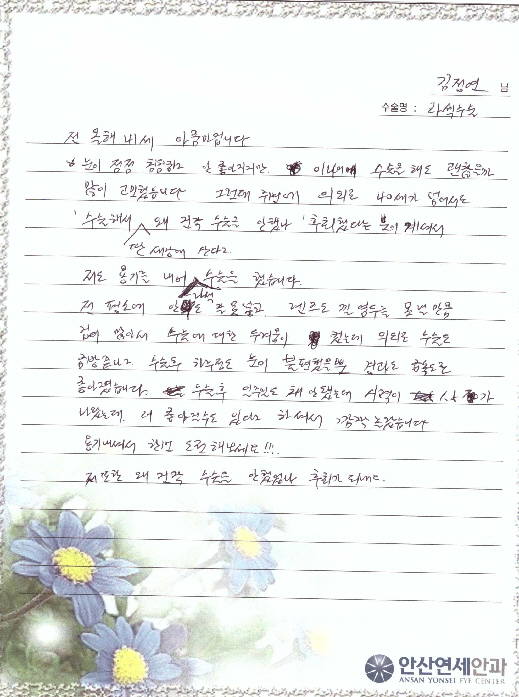 김정연 님
수술명 : 라섹수술
전 올해 41세 아줌마입니다
눈이 점점 침침하고 안 좋아지지만 이나이에 수술을 해도 괜찮을까
많이 고민했습니다 그런데 주변에 의외로 40세가 넘어서도
수술해서 딴 세상에 산다고 왜 진작 수술을 안했나 후회된다는 분이 계셔서
저도 용기를 내어 라섹 수술을 했습니다.
전 평소에 안약도 잘 못넣고, 렌즈도 낄 엄두를 못낼 만큼
겁이 많아서 수술에 대한 두려움이 컸는데 의외로 수술도
금방끝나고 수술후 하루정도 눈이 불편했을뿐 결과도 급속도로
좋아졌습니다. 수술후 일주일도 채 안됐는데 시력이 가
나왔는데, 더 좋아질수도 있다고 하셔서 깜짝 놀랐습니다
용기내셔서 한번 도전해보세요!!!.
저또한 왜 진작 수술을 안했었나 후회가 되네요.
안산연세안과
ANSAN YONSEI EYE CENTER